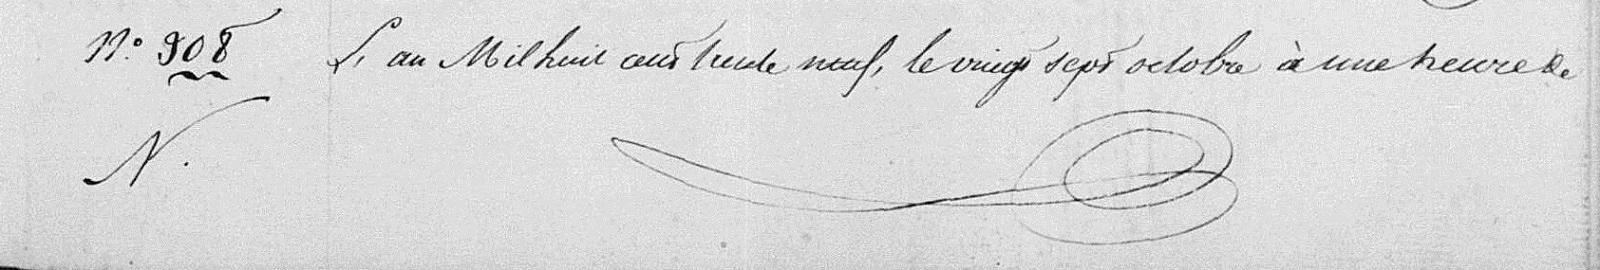 N.° 908 L'an Mil huit cent trente neuf, le vingt sept octobre à une heure de
N.